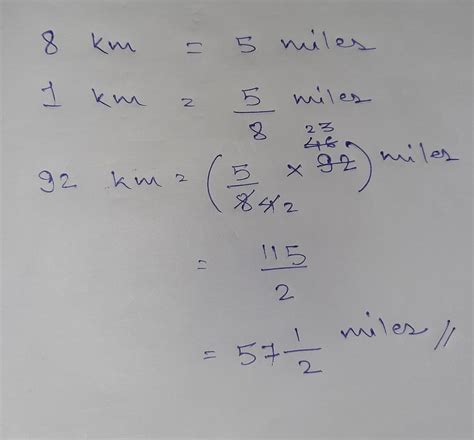 8 km = 5 miles
1 km = 5/8 miles
92 km = (5/8 4 2 × 92 46 23) miles
= 115/2
= 57 1/2 miles //